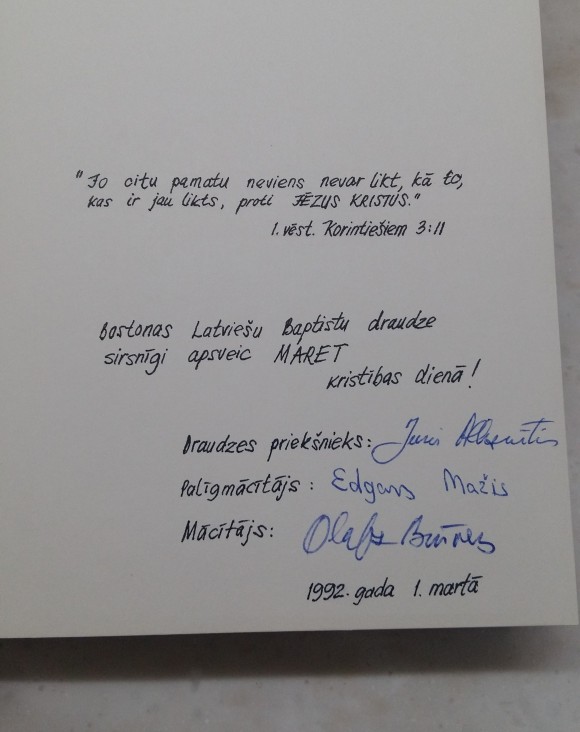 "Jo citu pamatu neviens nevar likt, kā to,
kas ir jau likts, proti JĒZUS KRISTUS."
1. vēst. Korintiešiem 3:11
Bostonas Latviešu Baptistu draudze
sirsnīgi apsveic MARET
kristības dienā!
Draudzes priekšnieks: Juris
Palīgmācītājs: Edgars Mažis
Mācītājs: Olafs
1992. gada 1. martā